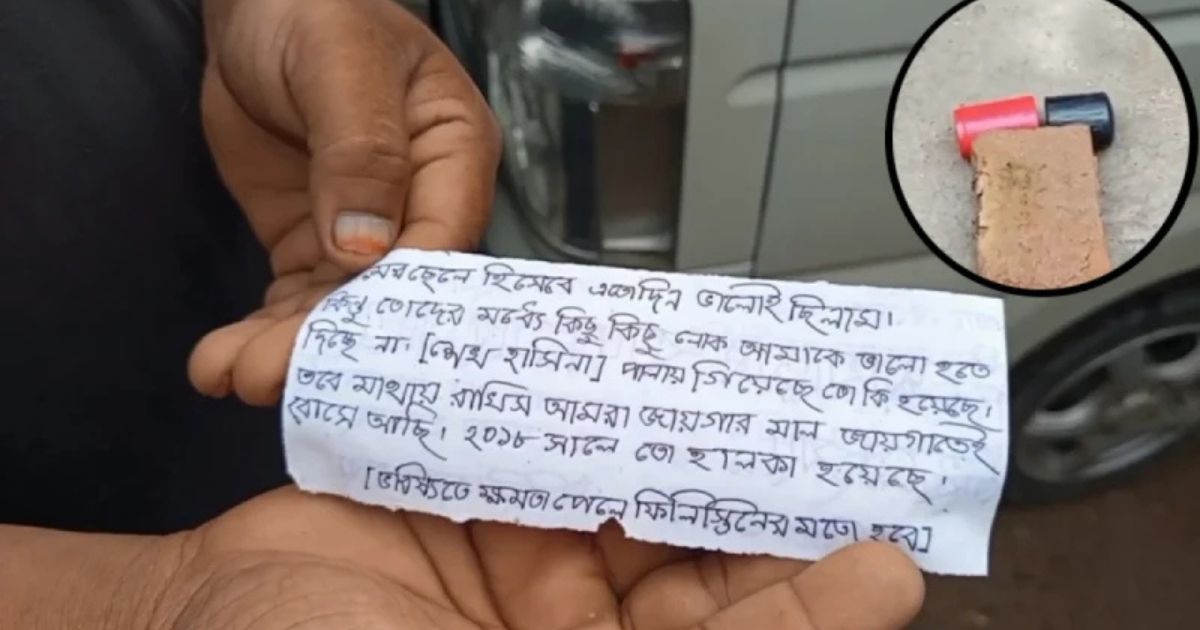 মেরছেলে হিসেবে এতোদিন ভালোই ছিলাম।
কিন্তু তোদের মধ্যে কিছু কিছু লোক আমাকে ভালো হতে
দিচ্ছে না। [শেখ হাসিনা] পালায় গিয়েছে তো কি হয়েছে।
তবে মাথায় রাখিস আমরা জায়গার মাল জায়গাতেই
বাসে আছি। ২০১৮ সালে তো হালকা হয়েছে।
[ভবিষ্যতে ক্ষমতা পেলে ফিলিস্তিনের মতো হবে]